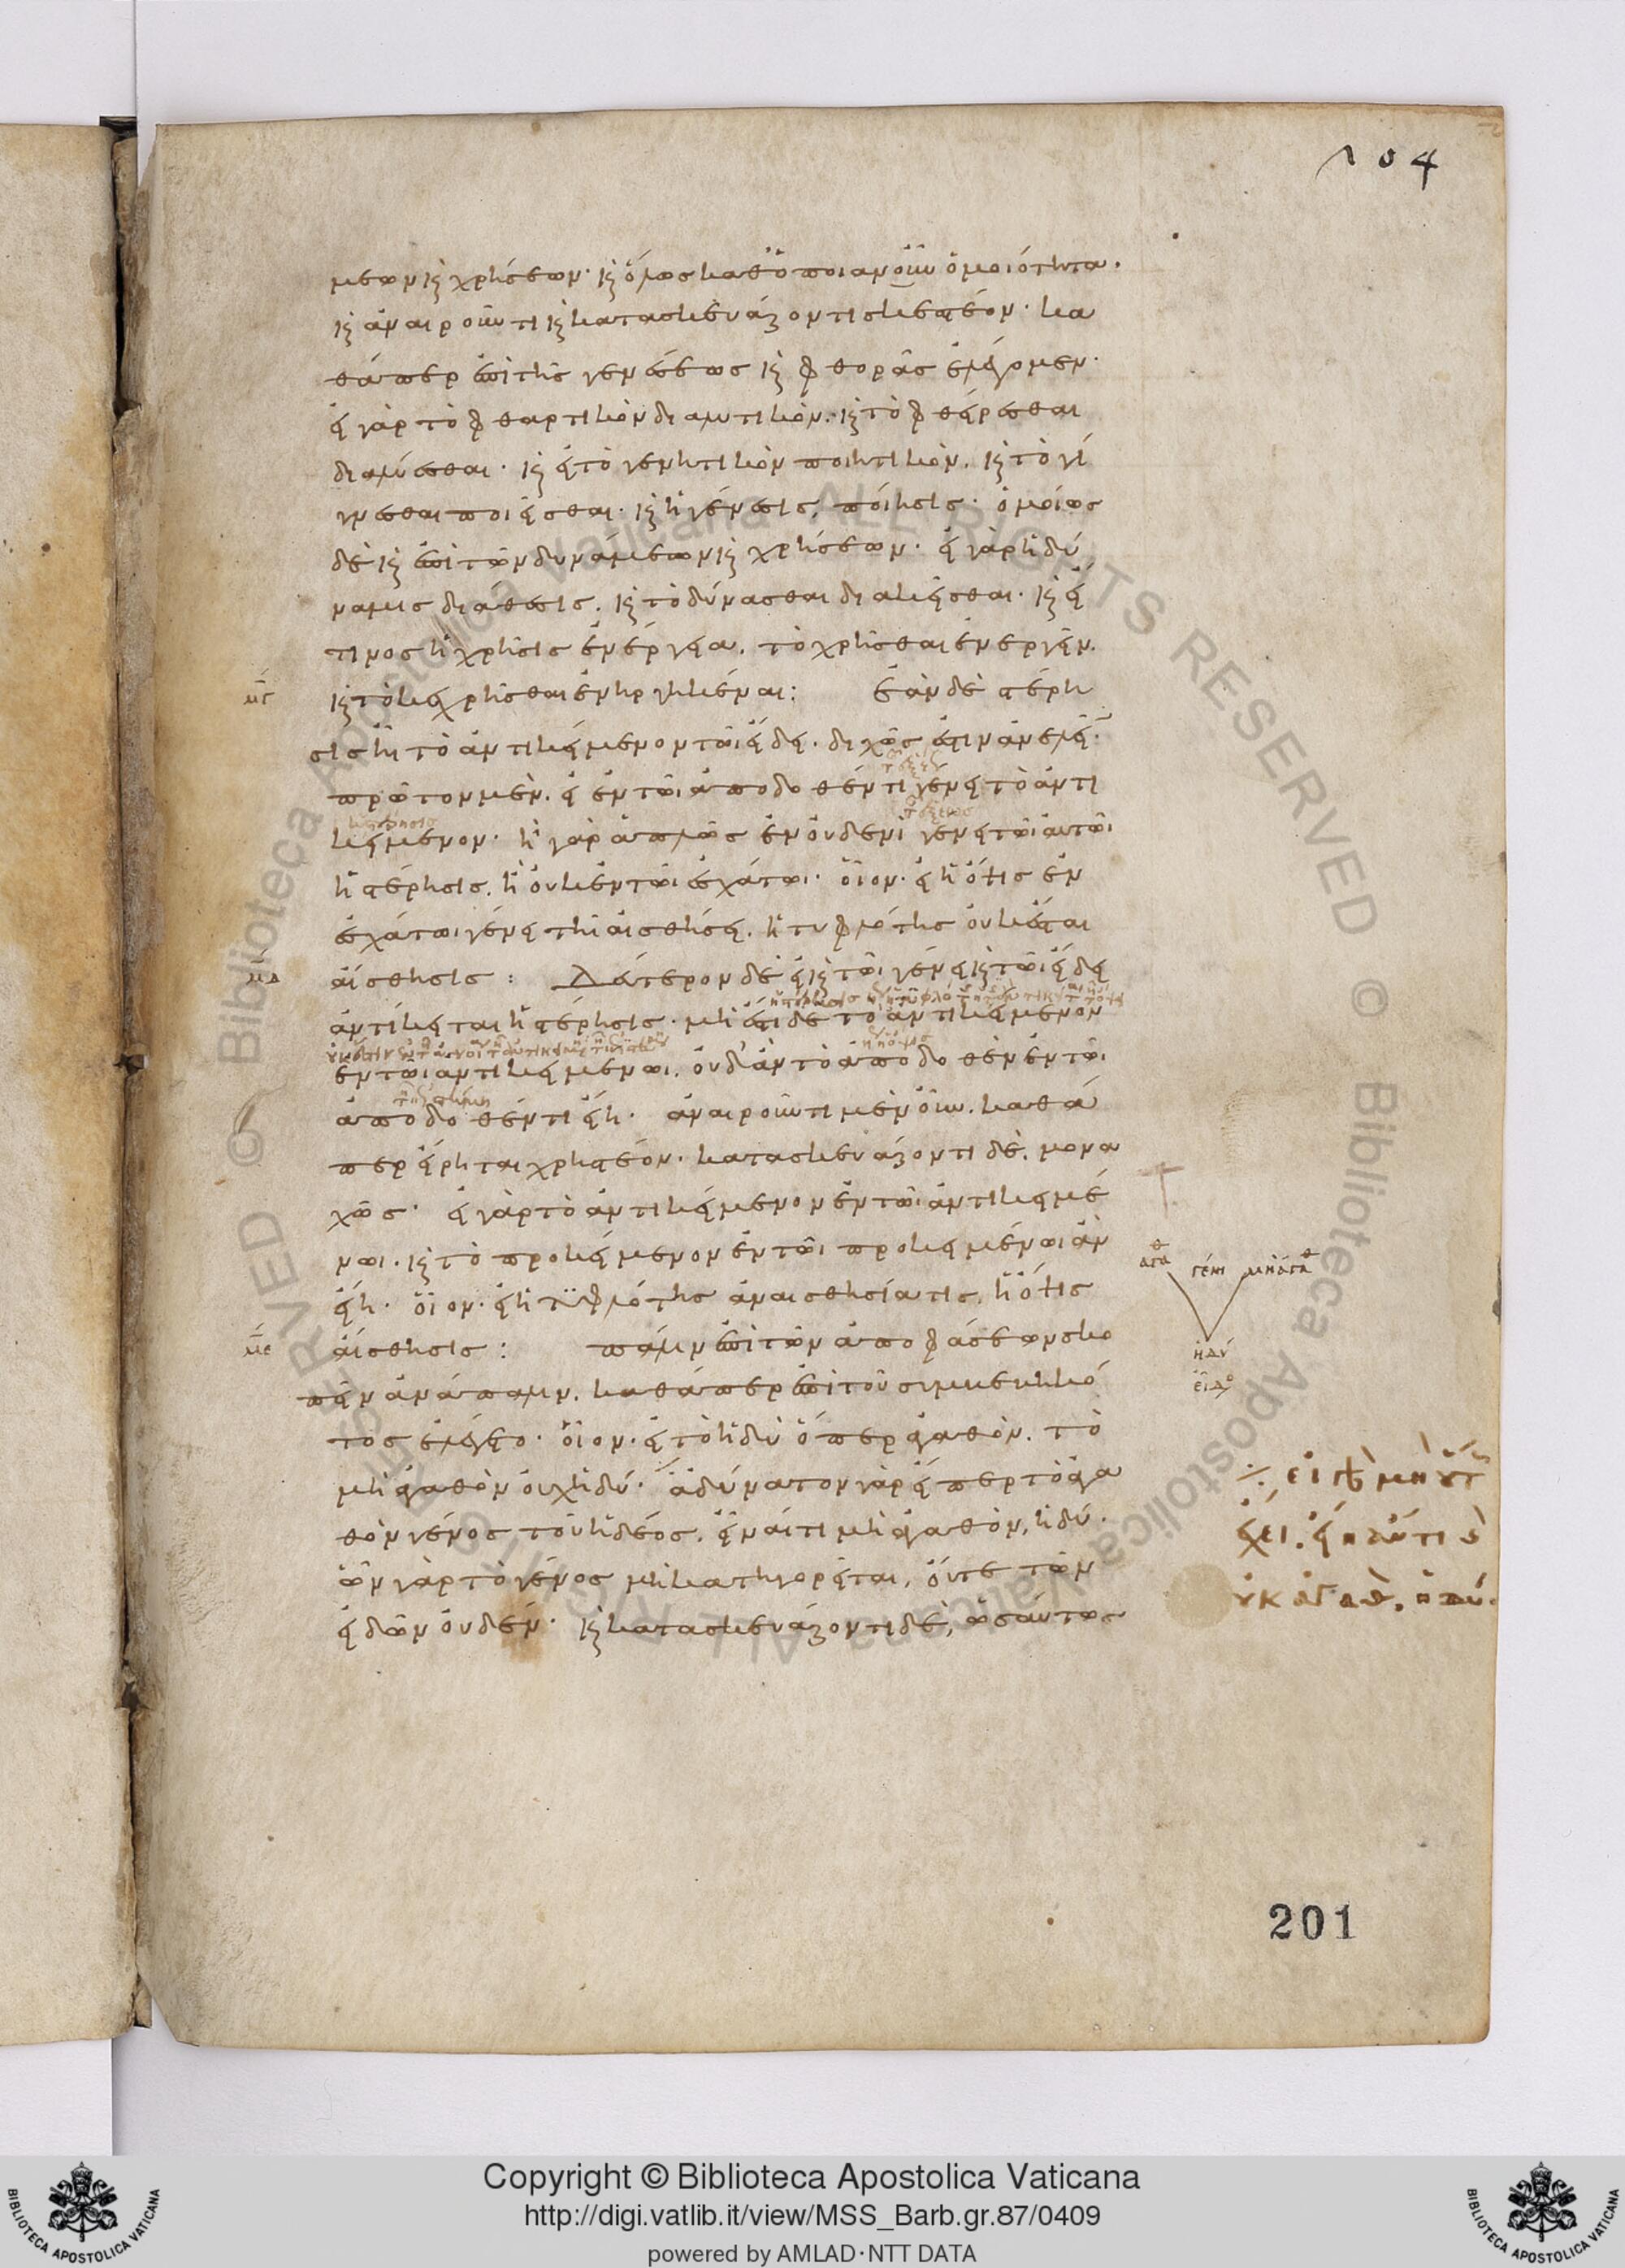 104
μεων καὶ χρήσεων· καὶ ὅλως καθ' ὁποιανοῦν ὁμοιότητα·
καὶ ἀναιροῦντι καὶ κατασκευάζοντι σκεπτέον· κα
θάπερ ἐπὶ τῆς γενέσεως καὶ φθορᾶς ἐλέγομεν·
εἰ γὰρ τὸ φθαρτικὸν διαλυτικόν. καὶ τὸ φθείρεσθαι
διαλύεσθαι· καὶ εἰ τὸ γεννητικὸν ποιητικόν. καὶ τὸ γί
γνεσθαι ποιεῖσθαι· καὶ ἡ γένεσις, ποίησις· ὁμοίως
δὲ καὶ ἐπὶ τῶν δυνάμεων καὶ χρήσεων· εἰ γὰρ ἡ δύ
ναμις διάθεσις. καὶ τὸ δύνασθαι διακεῖσθαι· καὶ εἴ
τινος ἡ χρῆσις ἐνέργεια. τὸ χρῆσθαι ἐνεργεῖν.
καὶ τὸ κεχρῆσθαι ἐνηργηκέναι: ἐὰν δὲ στέρη
σις ᾖ τὸ ἀντικείμενον τῶι εἴδει. διχῶς ἔστιν ἀνελεῖν·
πρῶτον μὲν. εἰ ἐν τῶι ἀποδοθέντι γένει τὸ ἀντι
κείμενον· ἢ γὰρ ἁπλῶς ἐν οὐδενὶ γένει τῶι αὐτῶι
ἡ στέρησις. ἢ οὐκ ἐν τῶι ἐσχάτωι· οἷον· εἰ ἡ ὄψις ἐν
ἐσχάτωι γένει τῆι αἰσθήσει. ἡ τυφλότης οὐκ ἔσται
μδ αἴσθησις: Δεύτερον δὲ εἰ καὶ τῶι γένει καὶ τῶι εἴδει
ἀντίκειται ἡ στέρησις· μὴ ἔστι δὲ τὸ ἀντικείμενον
ἐν τῶι ἀντικειμένωι. οὐδ' ἂν τὸ ἀποδοθὲν ἐν τῶι
ἀποδοθέντι εἴη· ἀναιροῦντι μὲν οὖν. καθά
περ εἴρηται χρηστέον· κατασκευάζοντι δὲ. μονα
χῶς· εἰ γὰρ τὸ ἀντικείμενον ἐν τῶι ἀντικειμέ
νωι. καὶ τὸ προκείμενον ἐν τῶι προκειμένωι ἂν
εἴη· οἷον· εἰ ἡ τυφλότης ἀναισθησία τις. ἡ ὄψις
με αἴσθησις: πάλιν ἐπὶ τῶν ἀποφάσεων σκο
πεῖν ἀνάπαλιν. καθάπερ ἐπὶ τοῦ συμβεβηκό
τος ἐλέγετο· οἷον· εἰ τὸ ἡδὺ ὅπερ ἀγαθόν. τὸ
μὴ ἀγαθὸν οὐχ ἡδύ· ἀδύνατον γὰρ εἴπερ τὸ ἀγα
θὸν γένος τοῦ ἡδέος. εἶναί τι μὴ ἀγαθὸν, ἡδύ·
ὧν γὰρ τὸ γένος μὴ κατηγορεῖται, οὔτε τῶν
εἰδῶν οὐδέν· καὶ κατασκευάζοντι δὲ, ὡσαύτως
ἀγαθ γέν μὴ ἀγαθ
ἡδύ
εἶδο
201
Copyright © Biblioteca Apostolica Vaticana
http://digi.vatlib.it/view/MSS_Barb.gr.87/0409
powered by AMLAD·NTT DATA